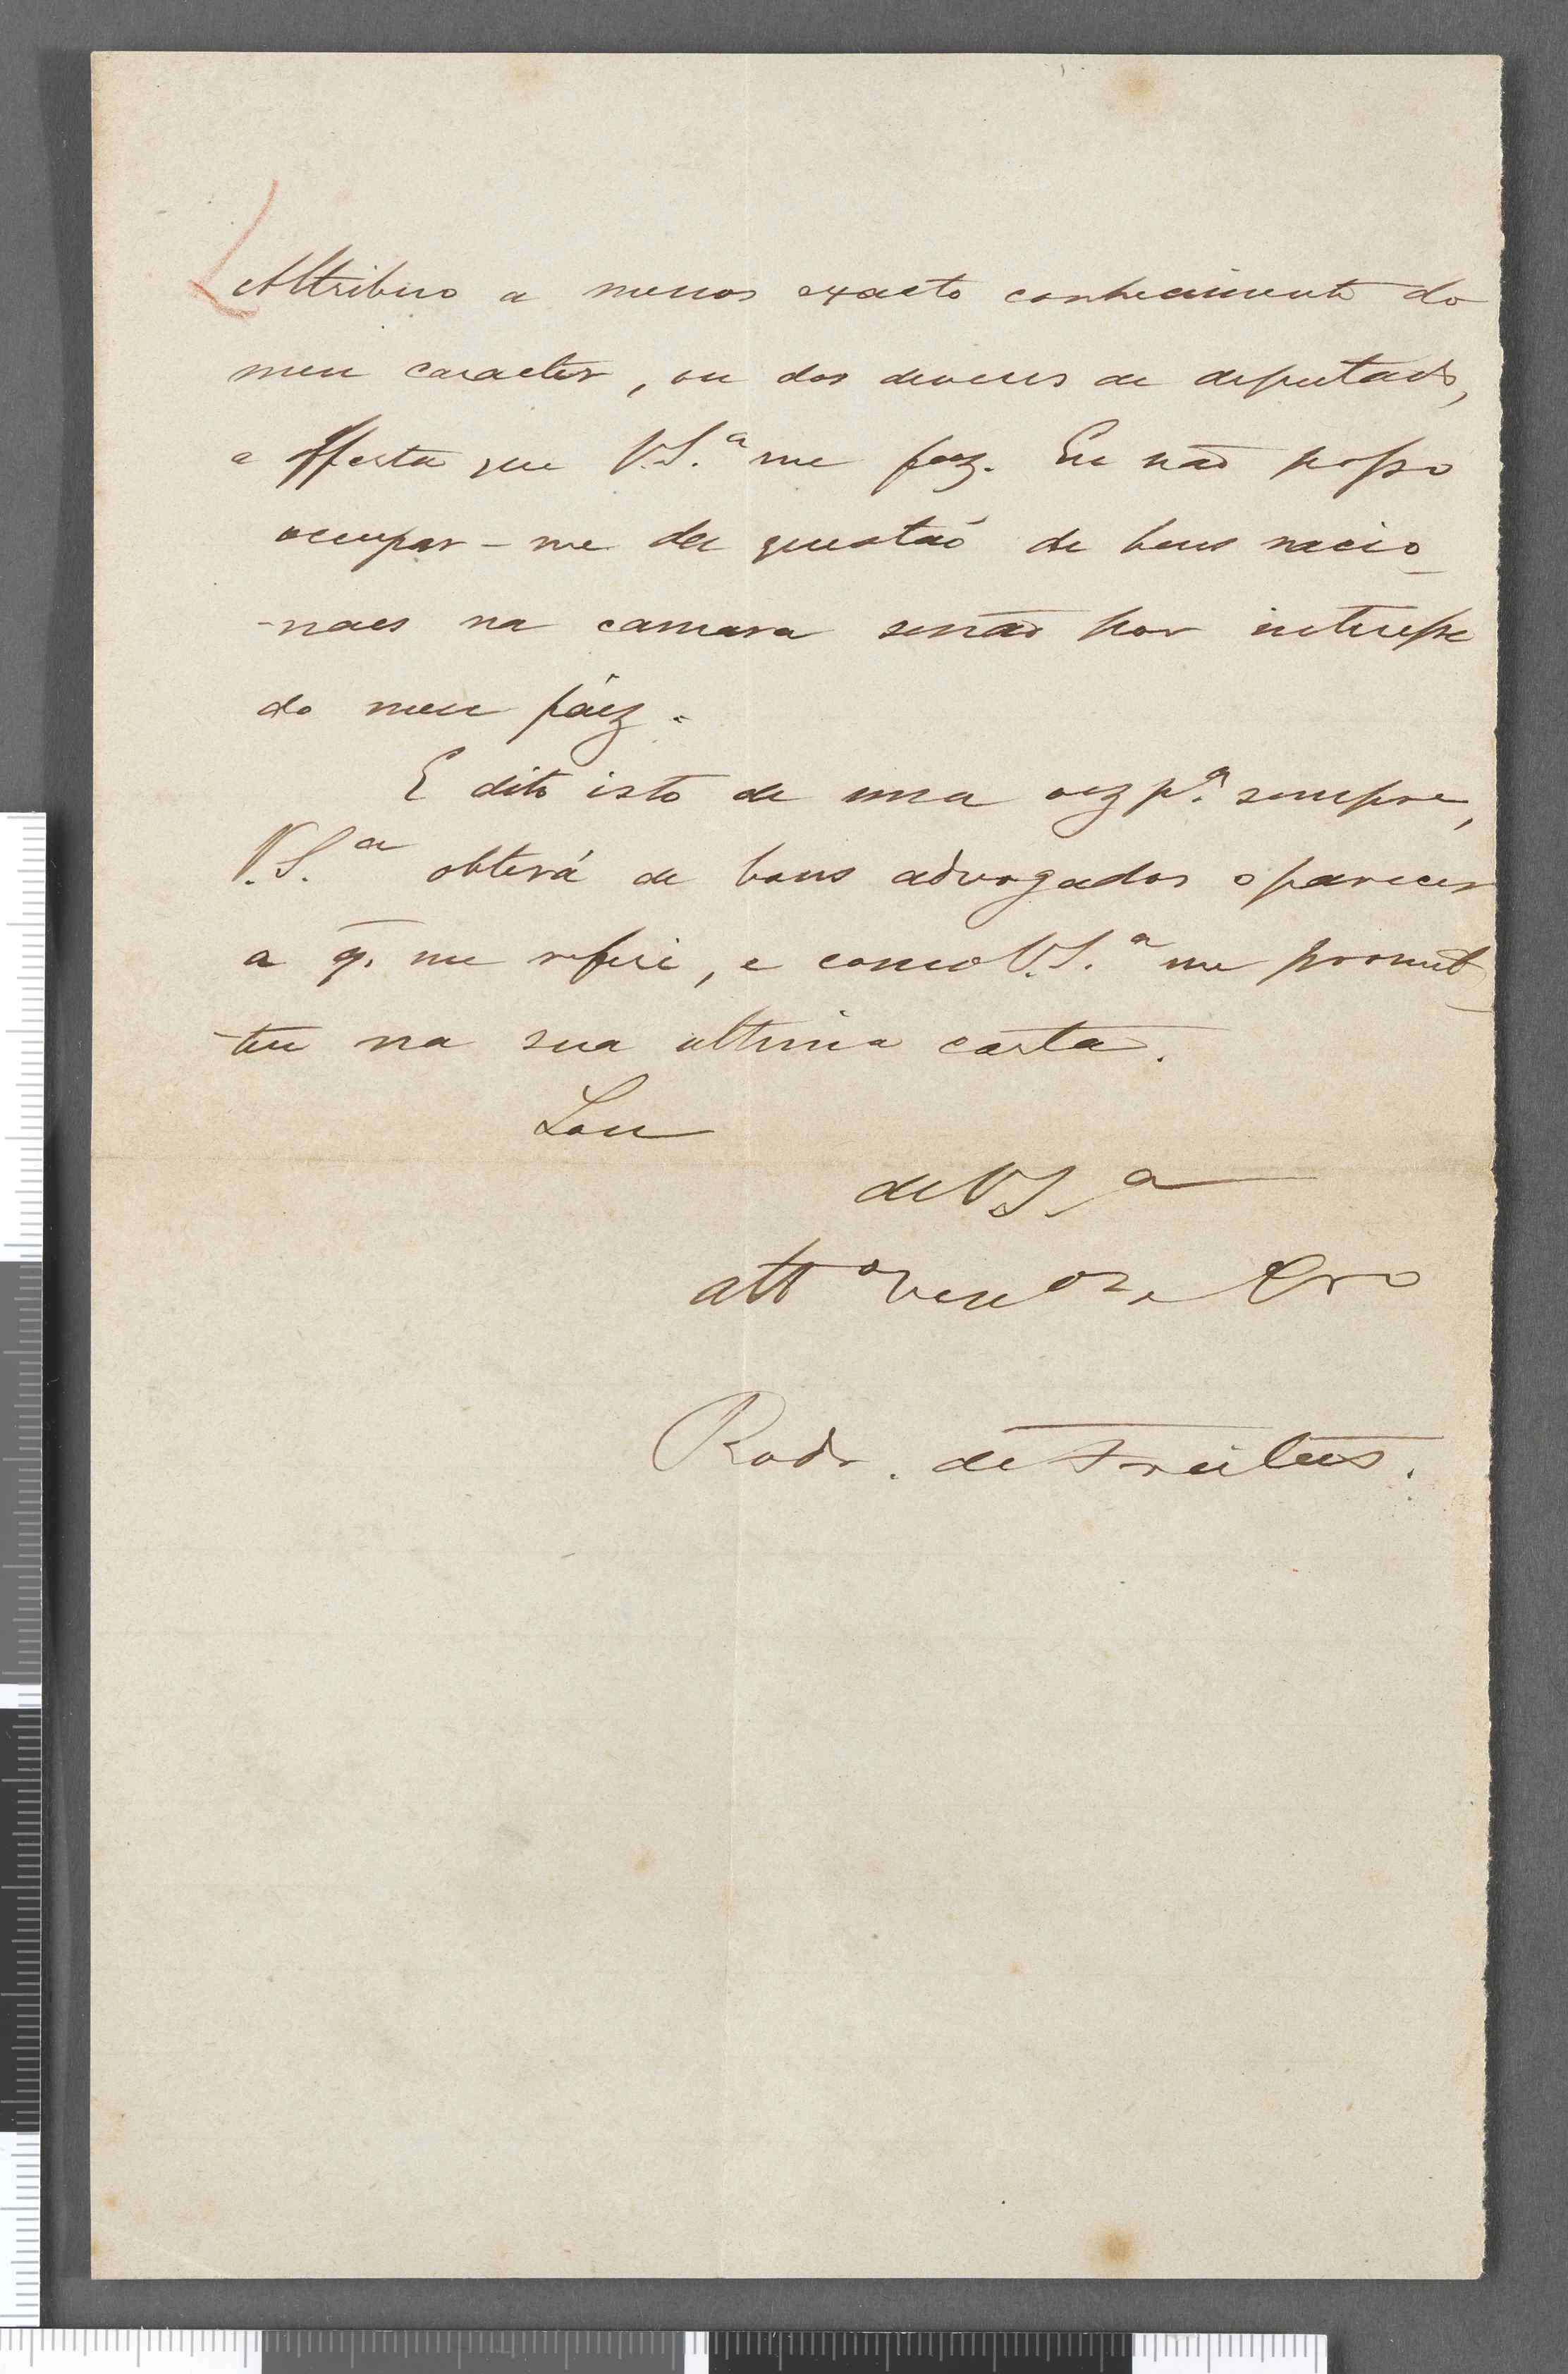 Attribuo a menos exacto conhecimento do
meu caracter, ou dos deveres de deputado,
a offerta que V.S.ª me faz. Eu não posso
occupar-me da questão de bens nacio-
-naes na camara senão por interesse
do meu páiz.
E dito isto de uma vez p.ª sempre,
V.S.ª obterá de bons advogados o parecer
a q. me referi, e como V.S.ª me promet-
-teu na sua ultima carta.
Sou
de V.S.ª
att.º ven.or e cr.o
Rodr. de Freitas.